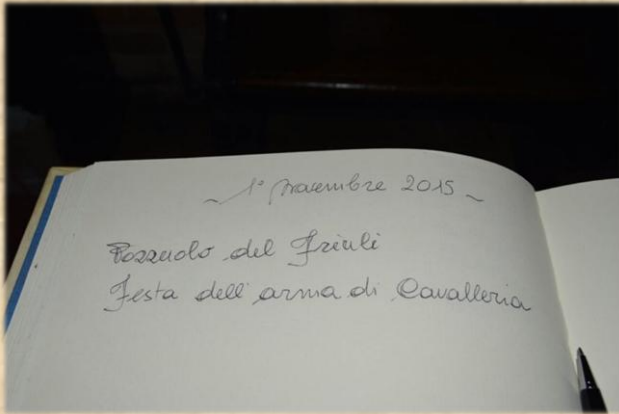 ~ 1° Novembre 2015 ~
Pozzuolo del Friuli
Festa dell'arma di Cavalleria